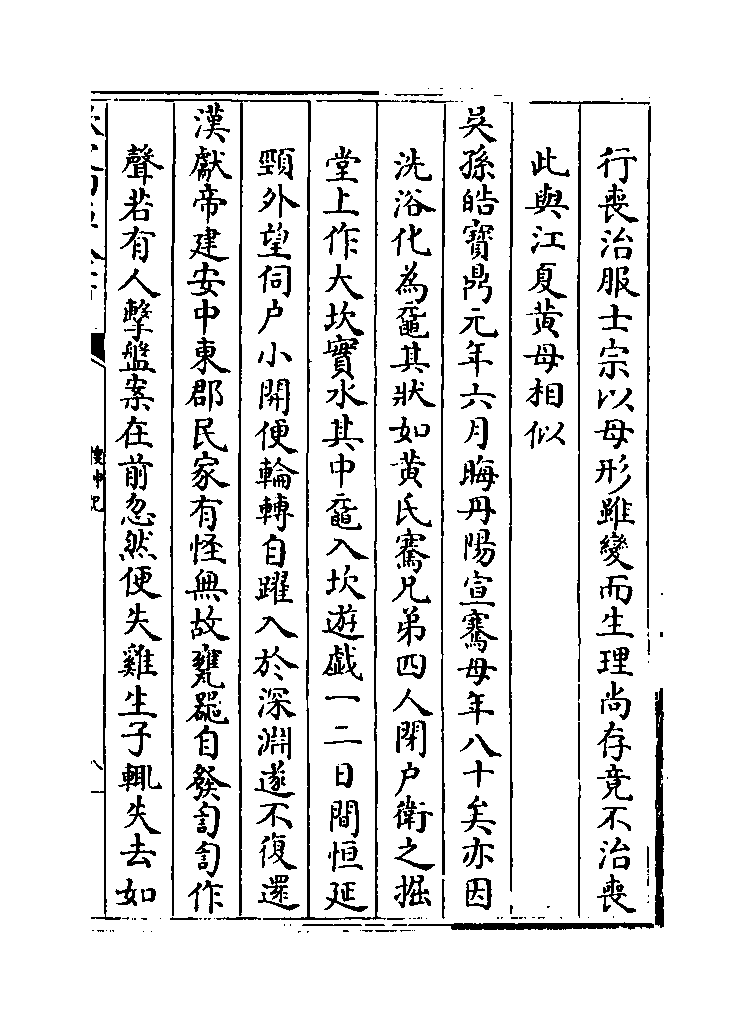 行喪治服士宗以母形雖變而生理尚存竟不治喪
此與江夏黄母相似
吳孫皓寳鼎元年六月晦丹陽宣騫母年八十矣亦因
洗浴化為黿其狀如黄氏騫兄弟四人閉户衛之掘
堂上作大坎實水其中黿入坎遊戯一二日間恒延
頸外望伺户小開便輪轉自躍入於深淵遂不復還
漢獻帝建安中東郡民家有怪無故甕器自發訇訇作
聲若有人擊盤案在前忽然便失雞生子輒失去如
搜神記